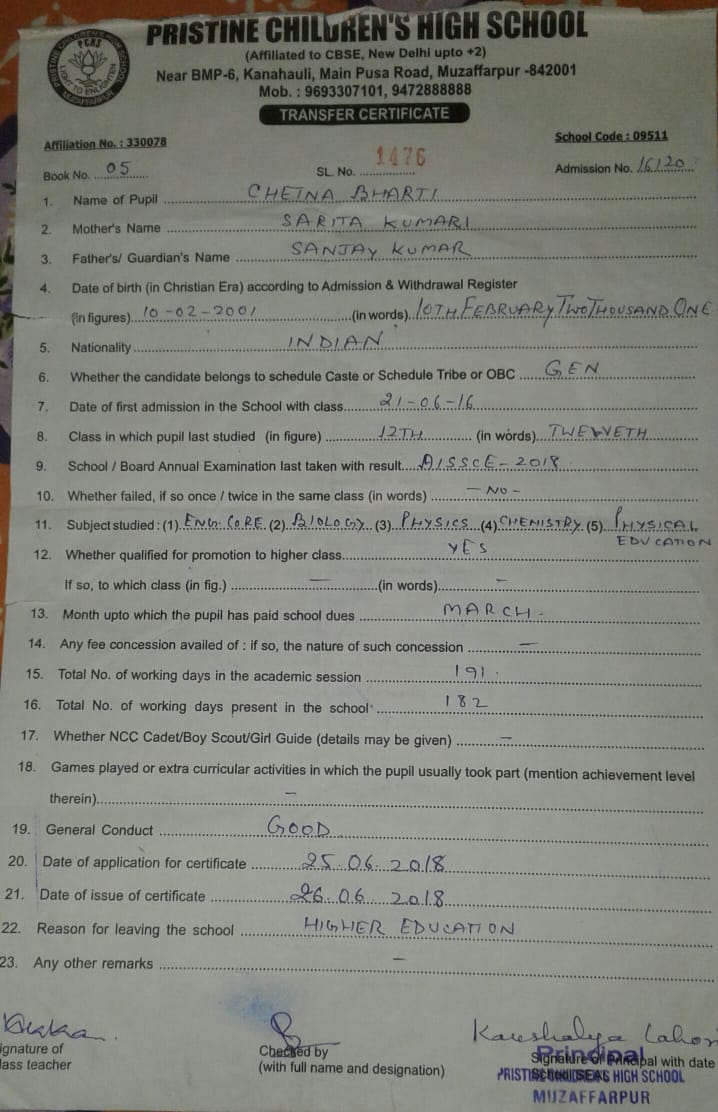 PRISTINE CHILDREN'S HIGH SCHOOL
(Affiliated to CBSE, New Delhi upto +2)
Near BMP-6, Kanahauli, Main Pusa Road, Muzaffarpur -842001
Mob. : 9693307101, 9472888888
PRISTINE CHILDREN'S HIGH SCHOOL
PCHS
LIGHT TO ENLIGHTEN
MUZAFFARPUR
TRANSFER CERTIFICATE
Affiliation No. : 330078 School Code : 09511
Book No. 05 SL. No. 1476 Admission No. 16/20
1. Name of Pupil CHETNA BHARTI
2. Mother's Name SARITA KUMARI
3. Father's/ Guardian's Name SANJAY KUMAR
4. Date of birth (in Christian Era) according to Admission & Withdrawal Register
(in figures) 10-02-2001 (in words) 10TH FEBRUARY TWO THOUSAND ONE
5. Nationality INDIAN
6. Whether the candidate belongs to schedule Caste or Schedule Tribe or OBC GEN
7. Date of first admission in the School with class 21-06-16
8. Class in which pupil last studied (in figure) 12TH (in words) TWELVETH
9. School / Board Annual Examination last taken with result AISSCE-2018
10. Whether failed, if so once / twice in the same class (in words) -NO-
11. Subject studied : (1) ENG. CORE (2) BIOLOGY (3) PHYSICS (4) CHEMISTRY (5) PHYSICAL
EDUCATION
12. Whether qualified for promotion to higher class YES
If so, to which class (in fig.) — (in words) -
13. Month upto which the pupil has paid school dues MARCH.
14. Any fee concession availed of : if so, the nature of such concession —
15. Total No. of working days in the academic session 191.
16. Total No. of working days present in the school 182
17. Whether NCC Cadet/Boy Scout/Girl Guide (details may be given) —
18. Games played or extra curricular activities in which the pupil usually took part (mention achievement level
therein) —
19. General Conduct GOOD
20. Date of application for certificate 25.06.2018
21. Date of issue of certificate 26.06.2018
22. Reason for leaving the school HIGHER EDUCATION
23. Any other remarks —
Kaushalya Lahori
ignature of Checked by Signature of Principal with date
lass teacher (with full name and designation) School SEAL
Principal
PRISTINE CHILDREN'S HIGH SCHOOL
MUZAFFARPUR